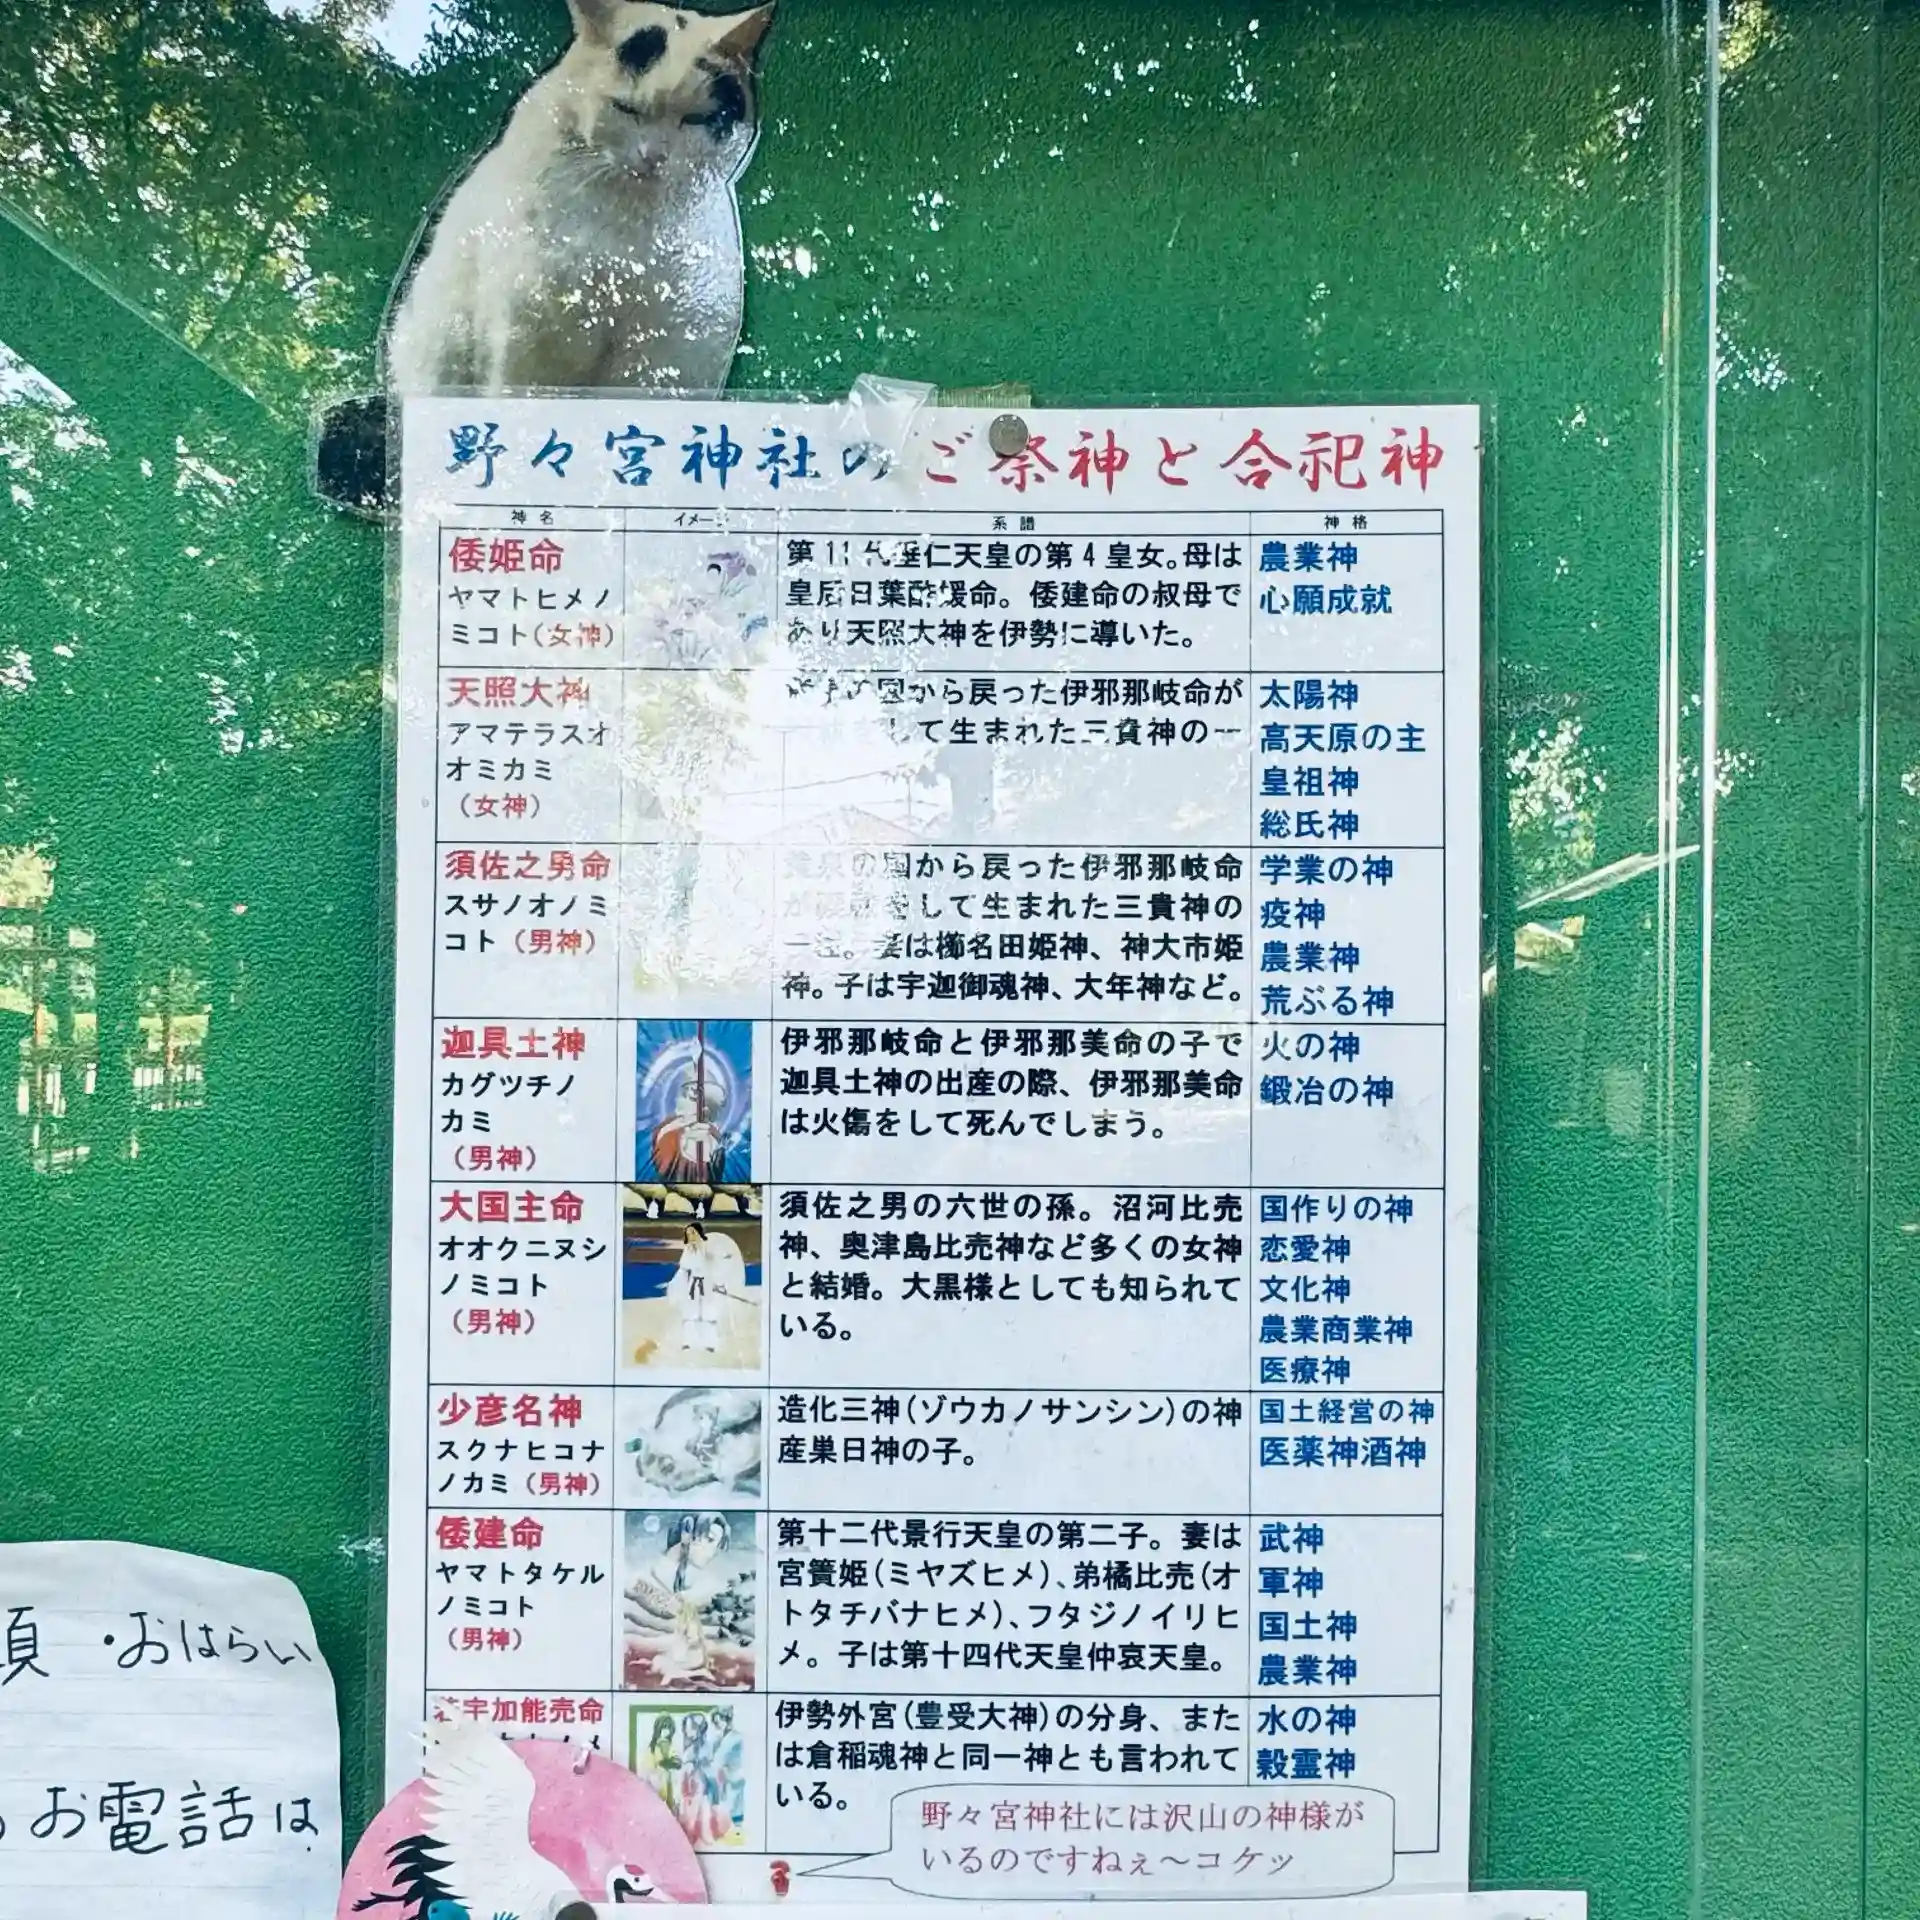 野々宮神社のご祭神と合祀神
神名 イメージ 系譜 神格
倭姫命
ヤマトヒメノ
ミコト(女神)
第11代垂仁天皇の第4皇女。母は
皇后日葉酢媛命。倭建命の叔母で
あり天照大神を伊勢に導いた。
農業神
心願成就
天照大神
アマテラスオ
オミカミ
(女神)
の国から戻った伊邪那岐命が
して生まれた三貴神の一
太陽神
高天原の主
皇祖神
総氏神
須佐之男命
スサノオノミ
コト(男神)
黄泉の国から戻った伊邪那岐命
が をして生まれた三貴神の
一柱。妻は櫛名田姫神、神大市姫
神。子は宇迦御魂神、大年神など。
学業の神
疫神
農業神
荒ぶる神
迦具土神
カグツチノ
カミ
(男神)
伊邪那岐命と伊邪那美命の子で
迦具土神の出産の際、伊邪那美命
は火傷をして死んでしまう。
火の神
鍛冶の神
大国主命
オオクニヌシ
ノミコト
(男神)
須佐之男の六世の孫。沼河比売
神、奥津島比売神など多くの女神
と結婚。大黒様としても知られて
いる。
国作りの神
恋愛神
文化神
農業商業神
医療神
少彦名神
スクナヒコナ
ノカミ(男神)
造化三神(ゾウカノサンシン)の神
産巣日神の子。
国土経営の神
医薬神酒神
倭建命
ヤマトタケル
ノミコト
(男神)
第十二代景行天皇の第二子。妻は
宮簀姫(ミヤズヒメ)、弟橘比売(オ
トタチバナヒメ)、フタジノイリヒ
メ。子は第十四代天皇仲哀天皇。
武神
軍神
国土神
農業神
若宇加能売命
伊勢外宮(豊受大神)の分身、また
は倉稲魂神と同一神とも言われて
いる。
水の神
穀霊神
野々宮神社には沢山の神様が
いるのですねぇ〜コケッ
・おはらい
お電話は